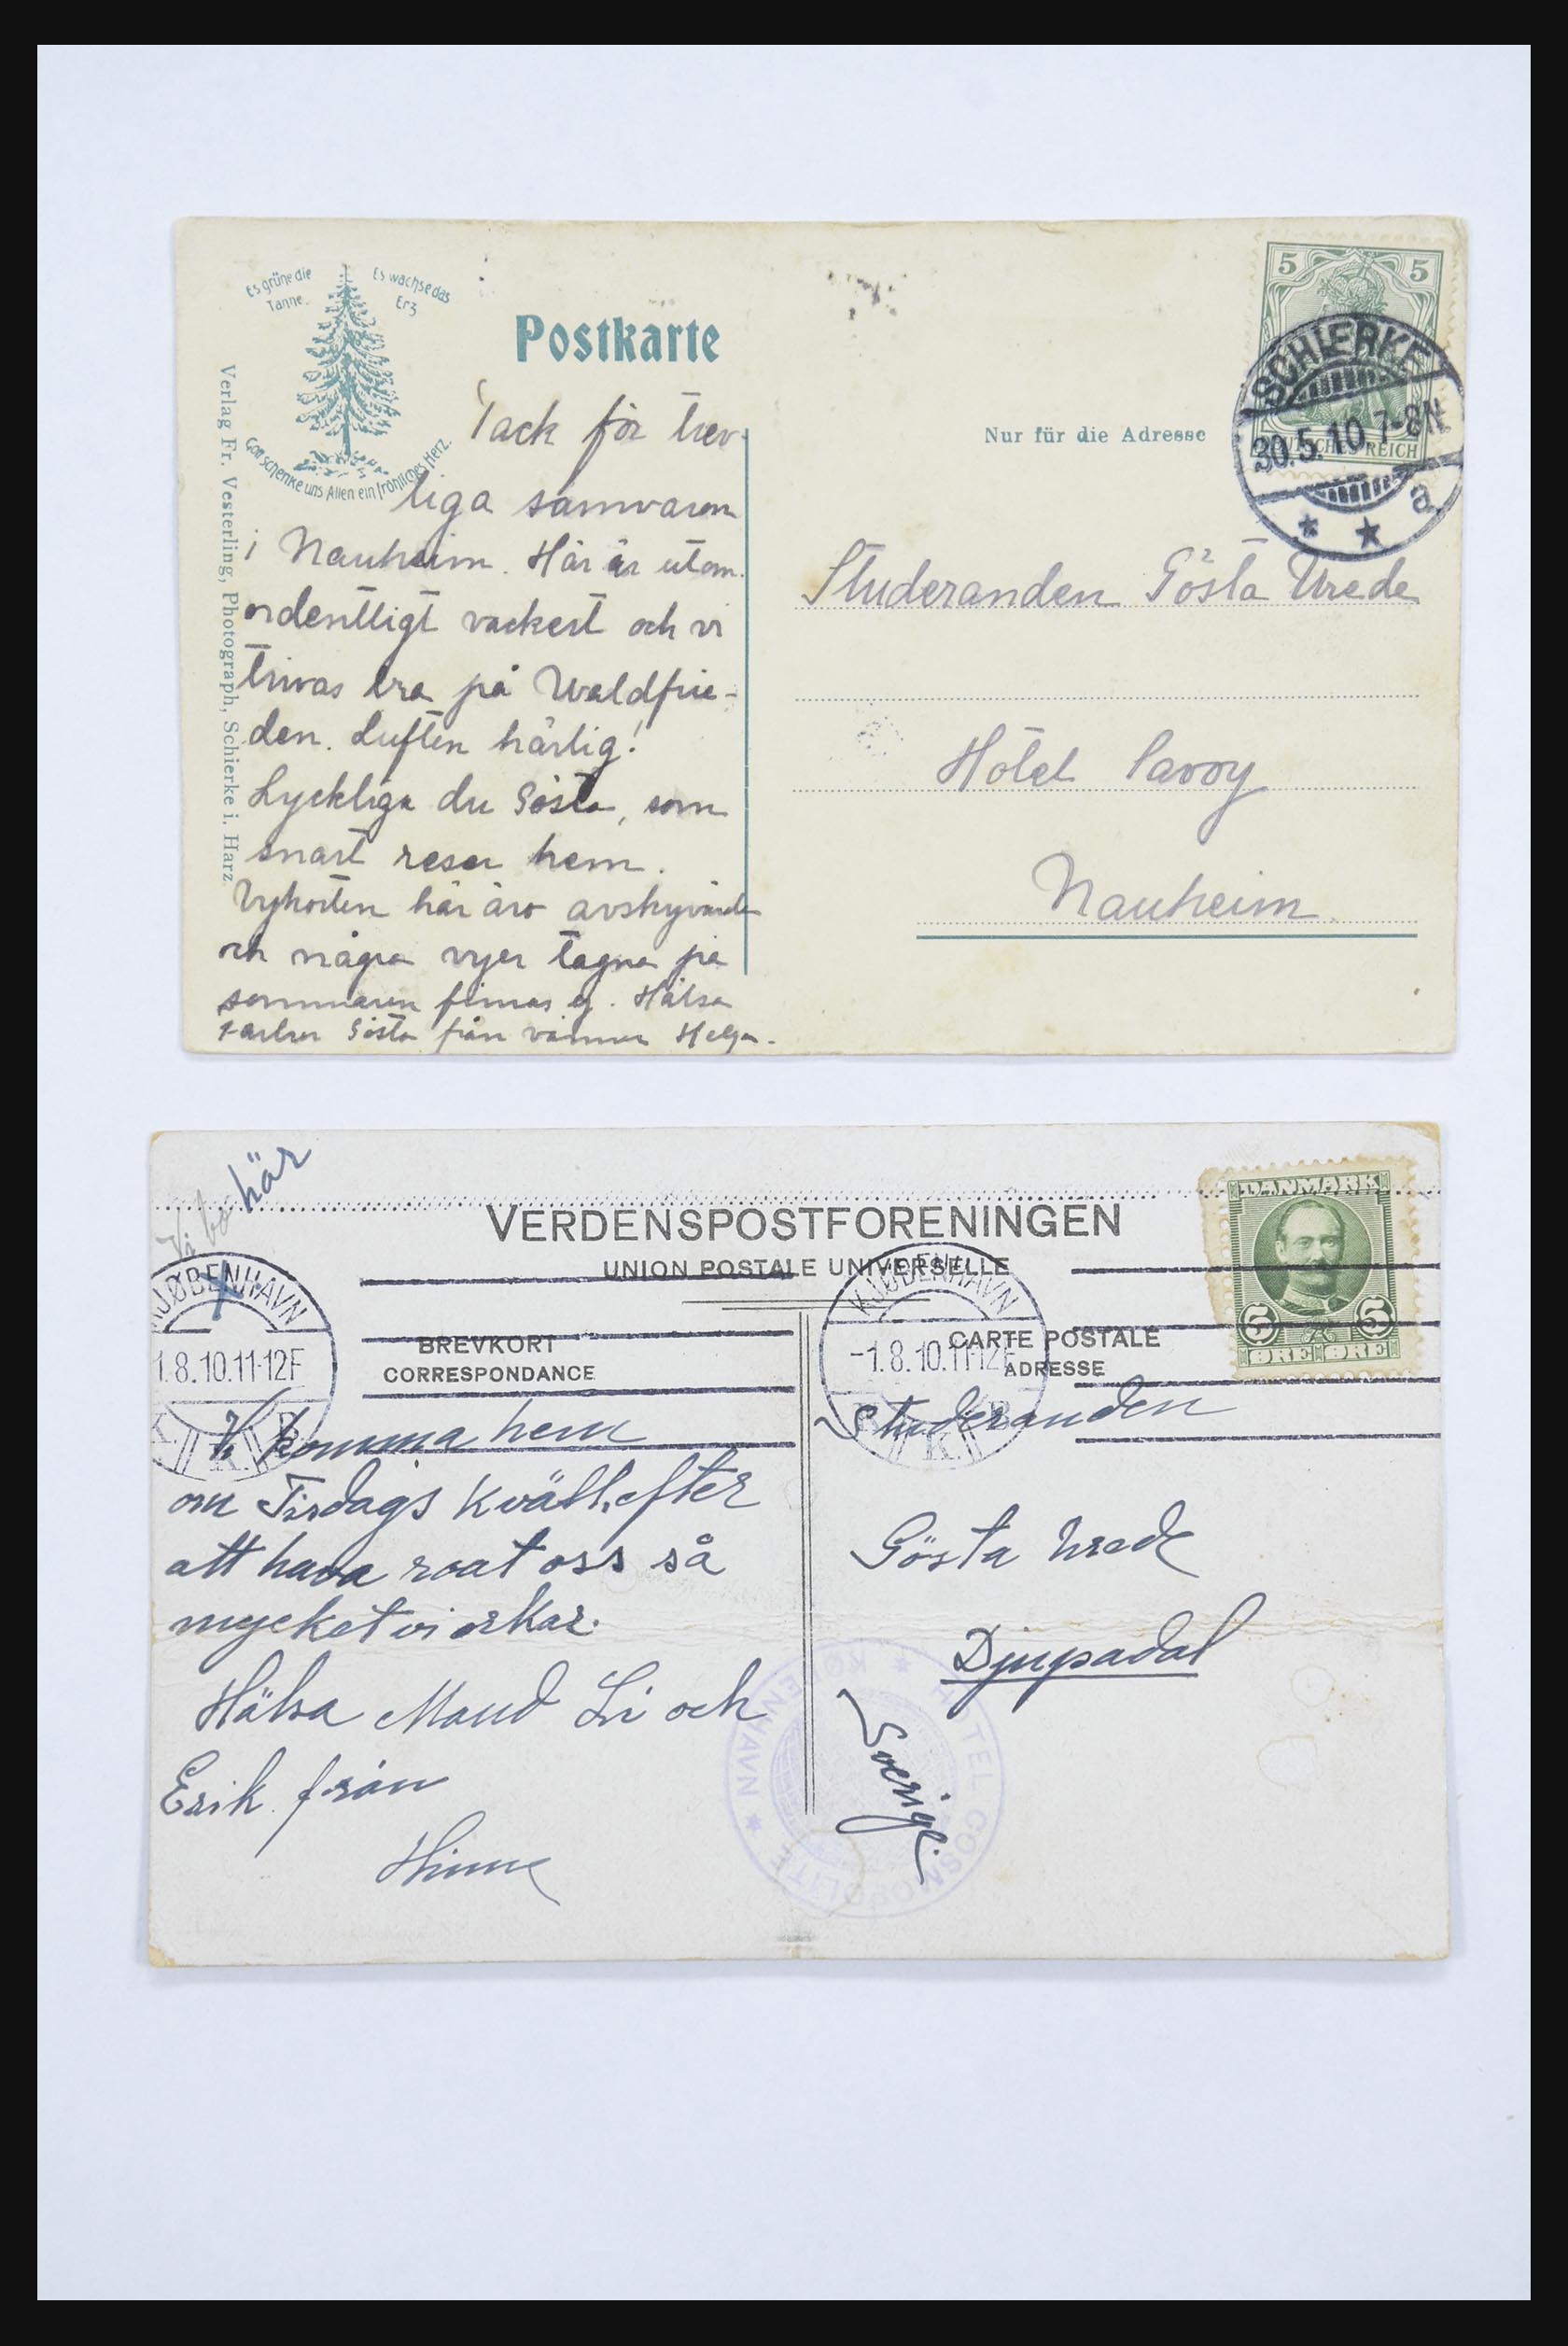 Es grüne die Tanne.
Es wachse das Erz
Gott schenke uns Allen ein fröhliches Herz.
Postkarte
Verlag Fr. Vesterling, Photograph, Schierke i. Harz
Tack för trev-
liga samvaron
i Nauheim. Här är utom-
ordentligt vackert och vi
trivas bra på Waldfrie-
den. Luften härlig!
Lyckliga du Gösta, som
snart reser hem.
Vykorten här äro avskyvärda
och några vyer tagna på
sommaren finnas ej. Hälsa
Gösta från vännen Helga.
Nur für die Adresse
5 5
DEUTSCHES REICH
SCHIERKE
30.5.10.7-8N
a
Studeranden Gösta Wrede
Hôtel Savoy
Nauheim
Vi bo här
X
VERDENSPOSTFORENINGEN
UNION POSTALE UNIVERSELLE
BREVKORT
CORRESPONDANCE
CARTE POSTALE
ADRESSE
KJØBENHAVN
1.8.10.11-12F
K. K. B
KJØBENHAVN
-1.8.10.11-12F
K. K. B
DANMARK
5 5
ØRE ØRE
Vi komma hem
om Tisdags kväll, efter
att hava roat oss så
mycket vi orkar.
Hälsa Maud Li och
Erik från
Studeranden
Gösta Wrede
Djupadal
Sverige.
HOTEL COSMOPOLITE
KØBENHAVN